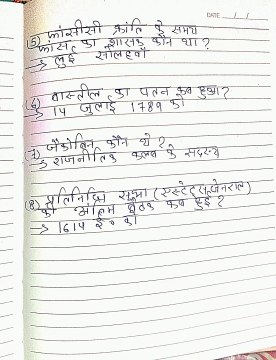 DATE / /
(5) फ्रांसीसी क्रांति के समय
फ्रांस का शासक कौन था ?
→ लुई सोलहवां
(6) बास्तील का पतन कब हुआ ?
→ 14 जुलाई 1789 को
(7) जैकोबिन कौन थे ?
→ राजनीतिक क्लब के सदस्य
(8) प्रतिनिधि सभा (एस्टेट्स जेनराल)
की अंतिम बैठक कब हुई ?
→ 1614 ई० को